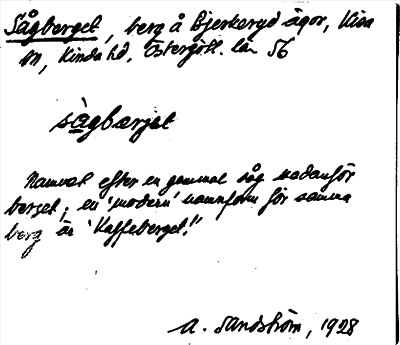 Sågberget, berg å Bjerkeryd ägor, Kisa
sn, Kinda hd. Östergötl. län 56
sàgbærjet
Namnet efter en gammal såg nedanför
berget; en 'modern' namnform för samma
berg är 'Kaffeberget!'
A. Sandström, 1928